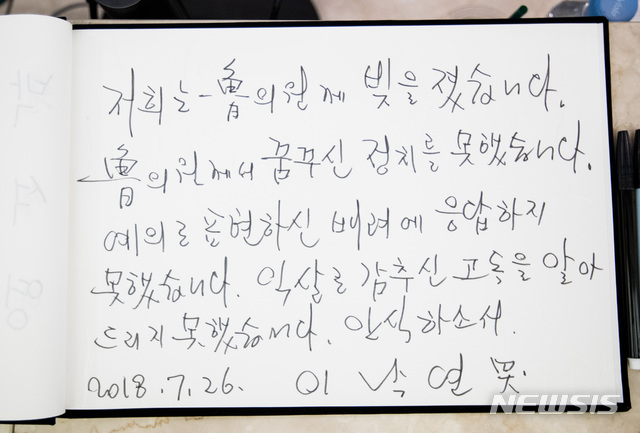 저희는 魯의원께 빚을 졌습니다.
魯의원께서 꿈꾸신 정치를 못했습니다.
예의로 표현하신 배려에 응답하지
못했습니다. 익살로 감추신 고독을 알아
드리지 못했습니다. 안식하소서.
2018.7.26. 이 낙 연 哭.
NEWSIS